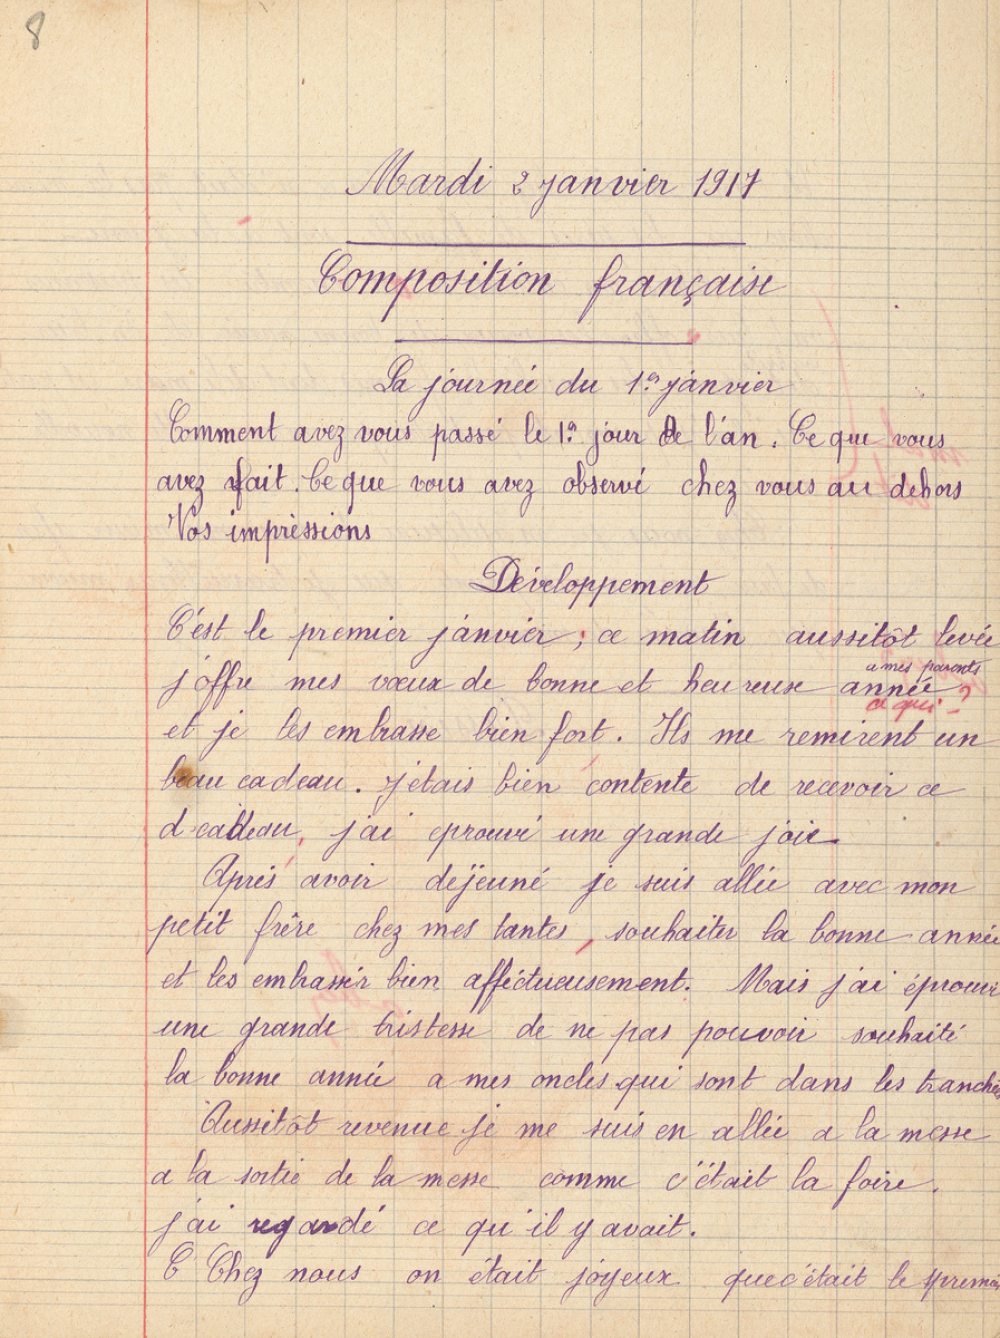 8
Mardi 2 janvier 1917
Composition française
La journée du 1er janvier
Comment avez vous passé le 1er jour de l'an. Ce que vous
avez fait. Ce que vous avez observé chez vous au dehors
Vos impressions
Développement
C'est le premier janvier ; ce matin aussitôt levée
a mes parents
j'offre mes vœux de bonne et heureuse année
a qui ?
et je les embrasse bien fort. Ils me remirent un
beau cadeau. J'étais bien contente de recevoir ce
d cadeau, j'ai eprouvé une grande joie
Après avoir déjeuné je suis allée avec mon
petit frère chez mes tantes, souhaiter la bonne année
et les embrassér bien afféctueusement. Mais j'ai éprouvé
une grande tristesse de ne pas pouvoir souhaité
la bonne année a mes oncles qui sont dans les tranchées
Aussitôt revenue je me suis en allée a la messe
a la sortie de la messe comme c'était la foire.
j'ai regardé ce qu'il y avait.
C Chez nous on était joyeux que c'était le premier